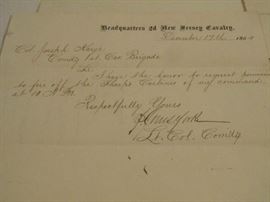 Headquarters 2d New Jersey Cavalry,
December 17th 186
Col Joseph Karge
Comdg 1st Cav Brigade
Sir
I have the honor to request permission
to fire off the Sharps Carbines of my command
at 10 A.M.
Respectfully Yours
Yorke
Lt. Col. Comdg